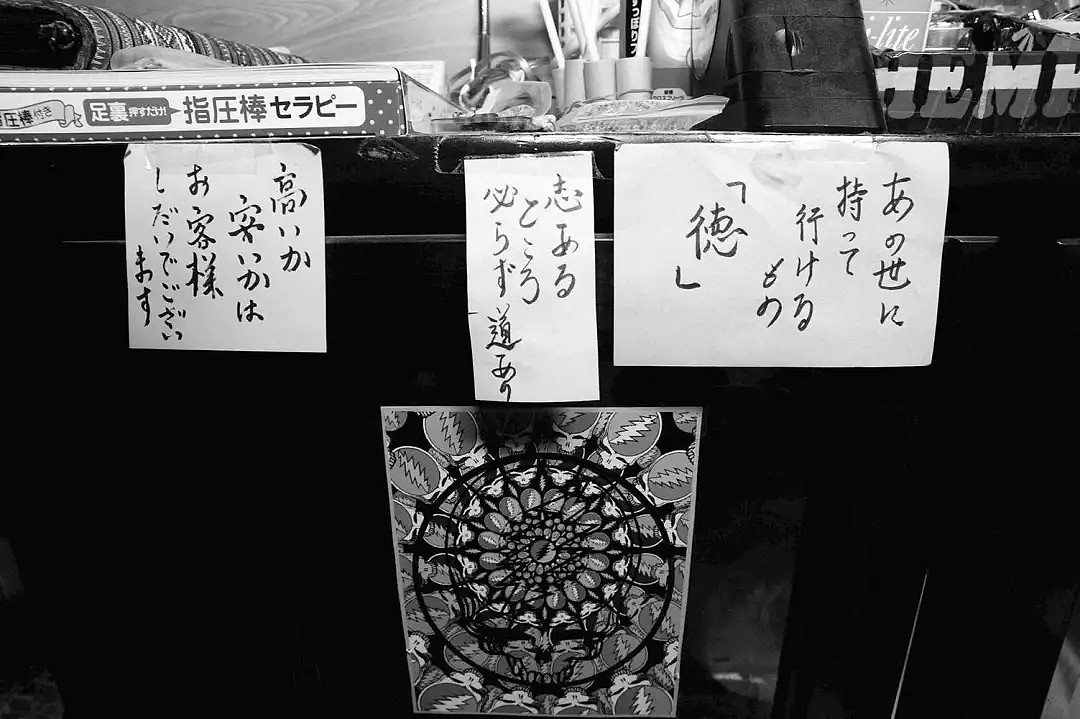 指圧棒付き
足裏押すだけ!
指圧棒セラピー
i-lite
HEMP
高いか
安いかは
お客様
しだいでござい
ます
志ある
ところ
必らず道あり
あの世に
持って
行ける
もの
「徳」